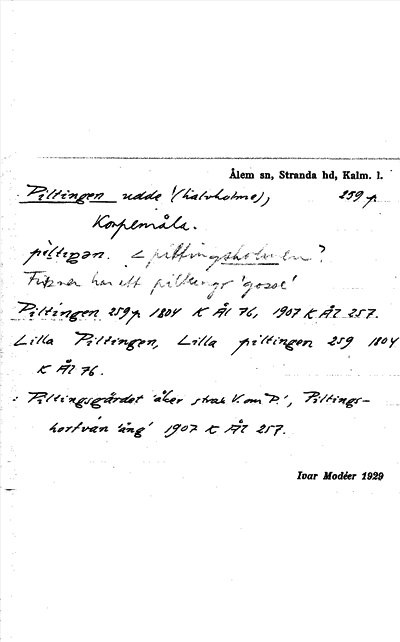 Ålem sn, Stranda hd, Kalm. l.
Piltingen udde (halvholme), 259 p.
Korpemåla.
piltiŋən. < piltingsholmen?
har ett piltungs 'gosse'
Piltingen 259p 1804 K Ål 76, 1907 K Ål 257.
Lilla Piltingen, Lilla piltingen 259 1804
K Ål 76.
: Piltingsgärdet 'åker strax V. om P.', Piltings-
'äng' 1907 K Ål 257.
Ivar Modéer 1929